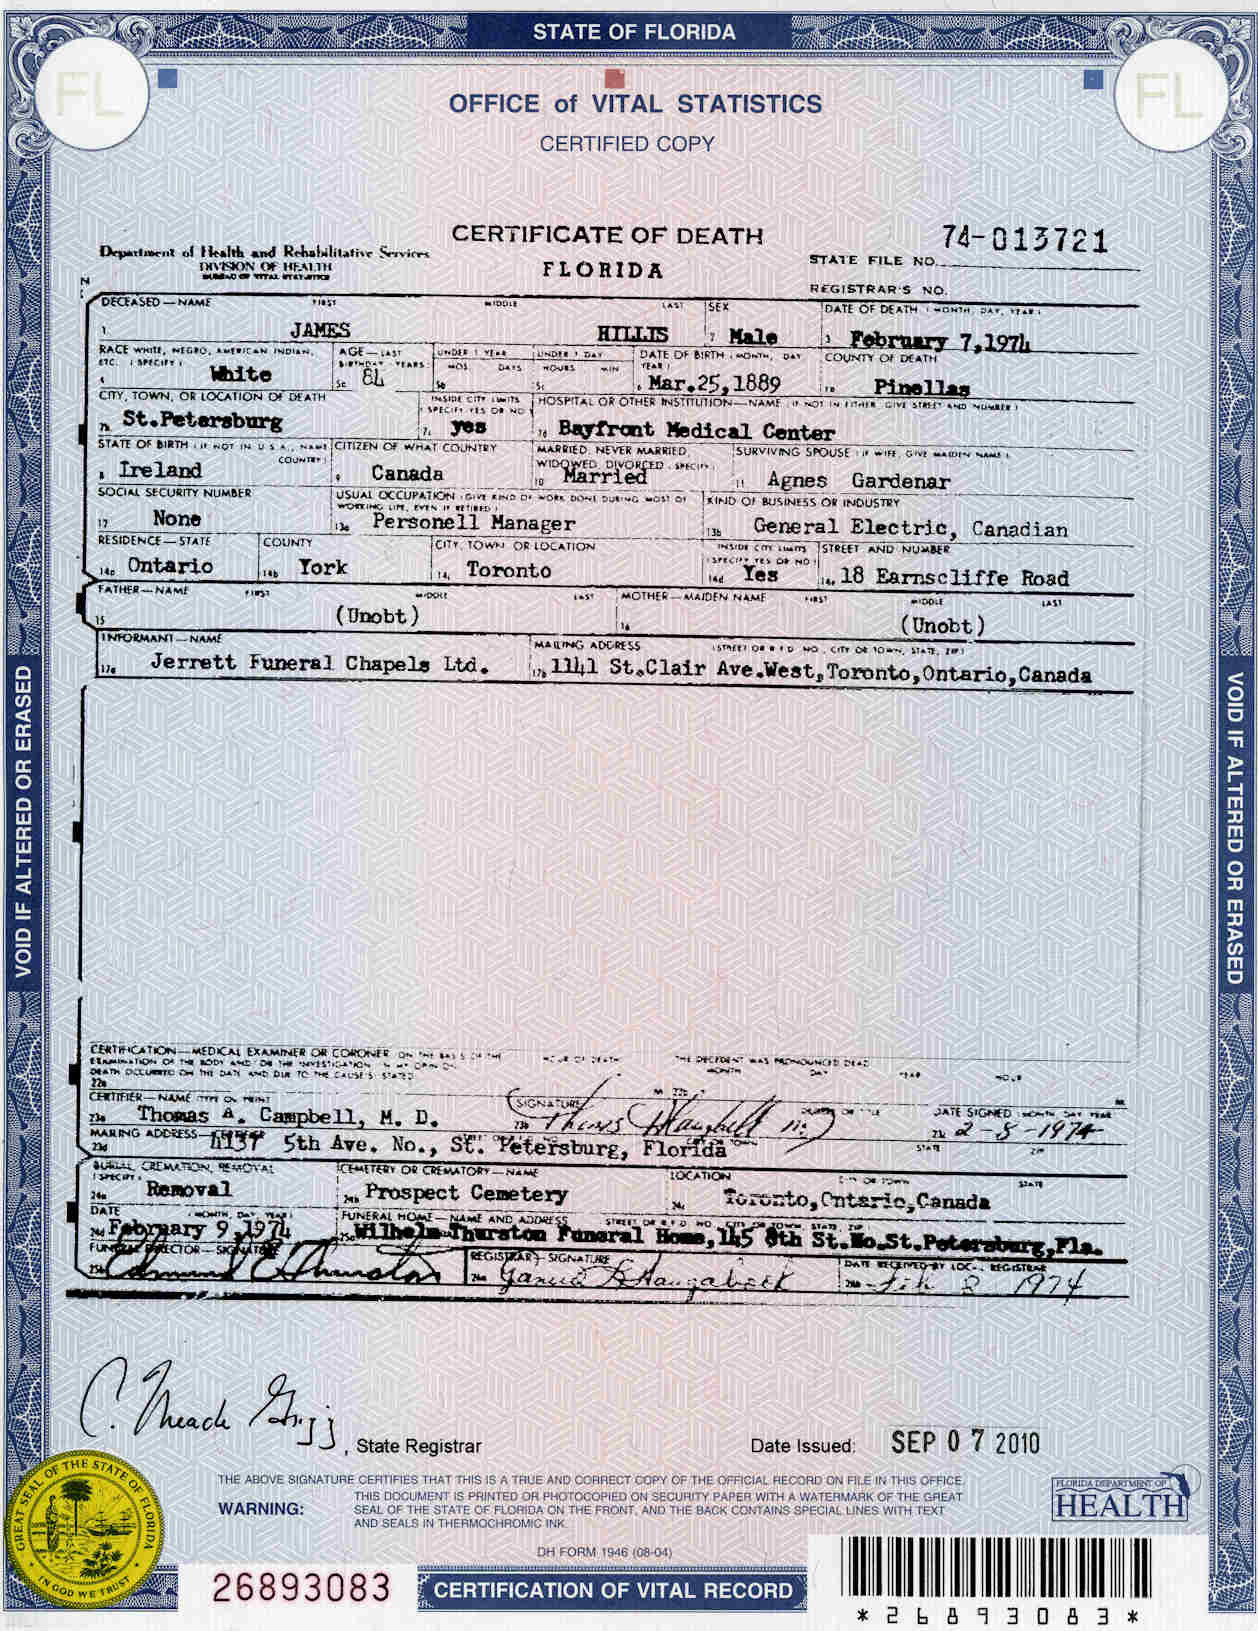 STATE OF FLORIDA
FL
FL
OFFICE of VITAL STATISTICS
CERTIFIED COPY
CERTIFICATE OF DEATH
FLORIDA
Department of Health and Rehabilitative Services
DIVISION OF HEALTH
BUREAU OF VITAL STATISTICS
74-013721
STATE FILE NO.
REGISTRAR'S NO.
DECEASED—NAME FIRST MIDDLE LAST SEX DATE OF DEATH (MONTH, DAY, YEAR)
1 JAMES HILLIS 2 Male 3 February 7,1974
RACE WHITE, NEGRO, AMERICAN INDIAN, ETC. (SPECIFY) AGE—LAST BIRTHDAY (YEARS) UNDER 1 YEAR MOS. DAYS UNDER 1 DAY HOURS MIN DATE OF BIRTH (MONTH, DAY YEAR) COUNTY OF DEATH
4 White 5a 84 5b 5c 6 Mar.25,1889 7a Pinellas
CITY, TOWN, OR LOCATION OF DEATH INSIDE CITY LIMITS (SPECIFY YES OR NO) HOSPITAL OR OTHER INSTITUTION—NAME (IF NOT IN EITHER, GIVE STREET AND NUMBER)
7b St.Petersburg 7c yes 7d Bayfront Medical Center
STATE OF BIRTH (IF NOT IN U.S.A., NAME COUNTRY) CITIZEN OF WHAT COUNTRY MARRIED, NEVER MARRIED, WIDOWED, DIVORCED (SPECIFY) SURVIVING SPOUSE (IF WIFE, GIVE MAIDEN NAME)
8 Ireland 9 Canada 10 Married 11 Agnes Gardenar
SOCIAL SECURITY NUMBER USUAL OCCUPATION (GIVE KIND OF WORK DONE DURING MOST OF WORKING LIFE, EVEN IF RETIRED) KIND OF BUSINESS OR INDUSTRY
12 None 13a Personell Manager 13b General Electric, Canadian
RESIDENCE—STATE COUNTY CITY, TOWN OR LOCATION INSIDE CITY LIMITS (SPECIFY YES OR NO) STREET AND NUMBER
14a Ontario 14b York 14c Toronto 14d Yes 14e 18 Earnscliffe Road
FATHER—NAME FIRST MIDDLE LAST MOTHER—MAIDEN NAME FIRST MIDDLE LAST
15 (Unobt) 16 (Unobt)
INFORMANT—NAME MAILING ADDRESS (STREET OR R F D NO., CITY OR TOWN, STATE, ZIP)
17a Jerrett Funeral Chapels Ltd. 17b 1141 St.Clair Ave.West,Toronto,Ontario,Canada
CERTIFICATION—MEDICAL EXAMINER OR CORONER ON THE BASIS OF THE HOUR OF DEATH THE DECEDENT WAS PRONOUNCED DEAD
EXAMINATION OF THE BODY AND/OR THE INVESTIGATION IN MY OPINION MONTH DAY YEAR HOUR
DEATH OCCURRED ON THE DATE AND DUE TO THE CAUSE(S) STATED
22a 22b M
CERTIFIER—NAME (TYPE OR PRINT) SIGNATURE DEGREE OR TITLE DATE SIGNED (MONTH, DAY, YEAR)
23a Thomas A. Campbell, M. D. 23b Thomas A Campbell MD 23c 2-8-1974
MAILING ADDRESS STATE ZIP
23d 4131 5th Ave. No., St. Petersburg, Florida
BURIAL, CREMATION, REMOVAL (SPECIFY) CEMETERY OR CREMATORY—NAME LOCATION CITY OR TOWN STATE
24a Removal 24b Prospect Cemetery 24c Toronto,Ontario,Canada
DATE (MONTH, DAY, YEAR) FUNERAL HOME—NAME AND ADDRESS STREET OR R F D NO., CITY OR TOWN, STATE, ZIP
24d February 9,1974 25a Wilhelm-Thurston Funeral Home,145 8th St.No.St.Petersburg,Fla.
FUNERAL DIRECTOR—SIGNATURE REGISTRAR—SIGNATURE DATE RECEIVED BY LOCAL REGISTRAR
25b Edmund C Thurston 26a 26b Feb 8 1974
VOID IF ALTERED OR ERASED
VOID IF ALTERED OR ERASED
C. Meade Grigg
, State Registrar
Date Issued: SEP 07 2010
THE ABOVE SIGNATURE CERTIFIES THAT THIS IS A TRUE AND CORRECT COPY OF THE OFFICIAL RECORD ON FILE IN THIS OFFICE.
WARNING: THIS DOCUMENT IS PRINTED OR PHOTOCOPIED ON SECURITY PAPER WITH A WATERMARK OF THE GREAT
SEAL OF THE STATE OF FLORIDA ON THE FRONT, AND THE BACK CONTAINS SPECIAL LINES WITH TEXT
AND SEALS IN THERMOCHROMIC INK.
DH FORM 1946 (08-04)
FLORIDA DEPARTMENT OF
HEALTH
GREAT SEAL OF THE STATE OF FLORIDA
IN GOD WE TRUST
26893083
CERTIFICATION OF VITAL RECORD
*26893083*